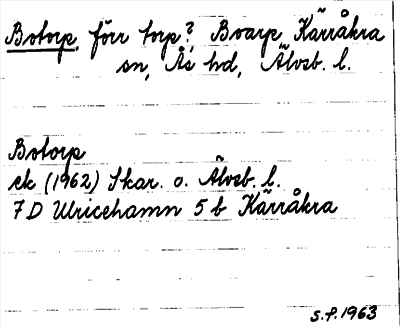 Botorp, förr torp?, Boarp Kärråkra
sn, Ås hd, Älvsb. l.
Botorp
ek (1962) Skar. o. Älvsb. l.
7 D Ulricehamn 5 b Kärråkra
S.F. 1963